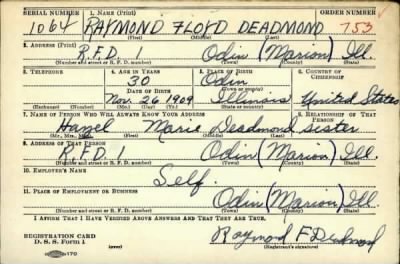 SERIAL NUMBER 1. NAME (Print) ORDER NUMBER
1064 RAYMOND FLOYD DEADMOND 753
(First) (Middle) (Last)
2. ADDRESS (Print)
R.F.D. 1 Odin (Marion) Ill.
(Number and street or R. F. D. number) (Town) (County) (State)
3. TELEPHONE 4. AGE IN YEARS 5. PLACE OF BIRTH 6. COUNTRY OF CITIZENSHIP
30 Odin
DATE OF BIRTH (Town or county)
Nov. 26 1909 Illinois United States
(Exchange) (Number) (Mo.) (Day) (Yr.) (State or country)
7. NAME OF PERSON WHO WILL ALWAYS KNOW YOUR ADDRESS 8. RELATIONSHIP OF THAT PERSON
Hazel Marie Deadmond Sister
(Mr., Mrs., Miss) (First) (Middle) (Last)
9. ADDRESS OF THAT PERSON
R.F.D. 1 Odin (Marion) Ill.
(Number and street or R. F. D. number) (Town) (County) (State)
10. EMPLOYER'S NAME
Self.
11. PLACE OF EMPLOYMENT OR BUSINESS
Odin (Marion) Ill.
(Number and street or R. F. D. number) (Town) (County) (State)
I AFFIRM THAT I HAVE VERIFIED ABOVE ANSWERS AND THAT THEY ARE TRUE.
REGISTRATION CARD
D. S. S. Form 1 (over) Raymond F Deadmond
(Registrant's signature)